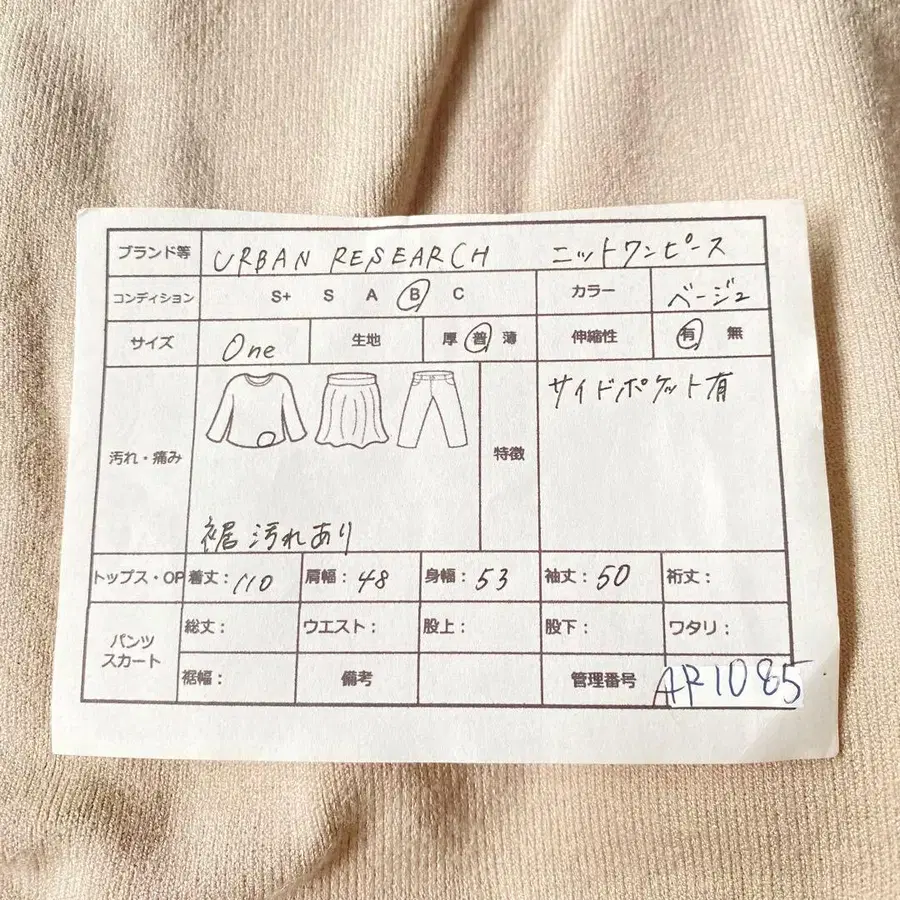 ブランド等 URBAN RESEARCH ニットワンピース
コンディション S+ S A B C カラー ベージュ
サイズ One 生地 厚 普 薄 伸縮性 有 無
汚れ・痛み 裾汚れあり 特徴 サイドポケット有
トップス・OP 着丈：110 肩幅：48 身幅：53 袖丈：50 裄丈：
パンツ スカート 総丈： ウエスト： 股上： 股下： ワタリ：
裾幅： 備考 管理番号 AP1085